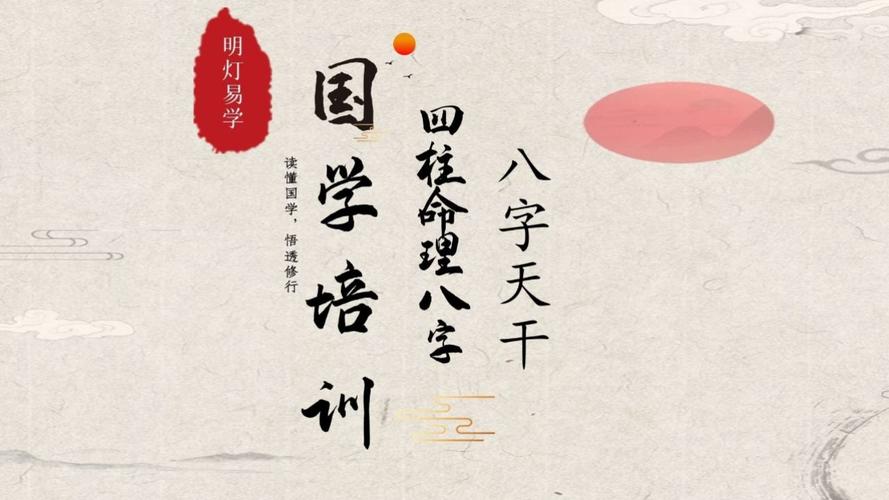 八字天干
四柱命理八字
国学培训
读懂国学，悟透修行
明灯易学